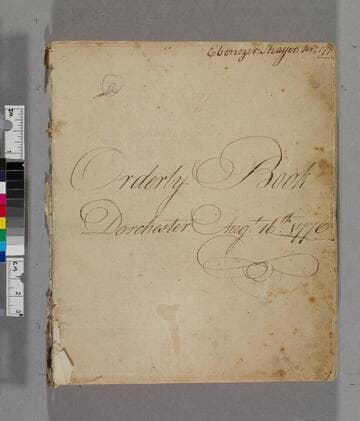 Ebenezer Thayer
Orderly Book
Dorchester Augt 16th 1776